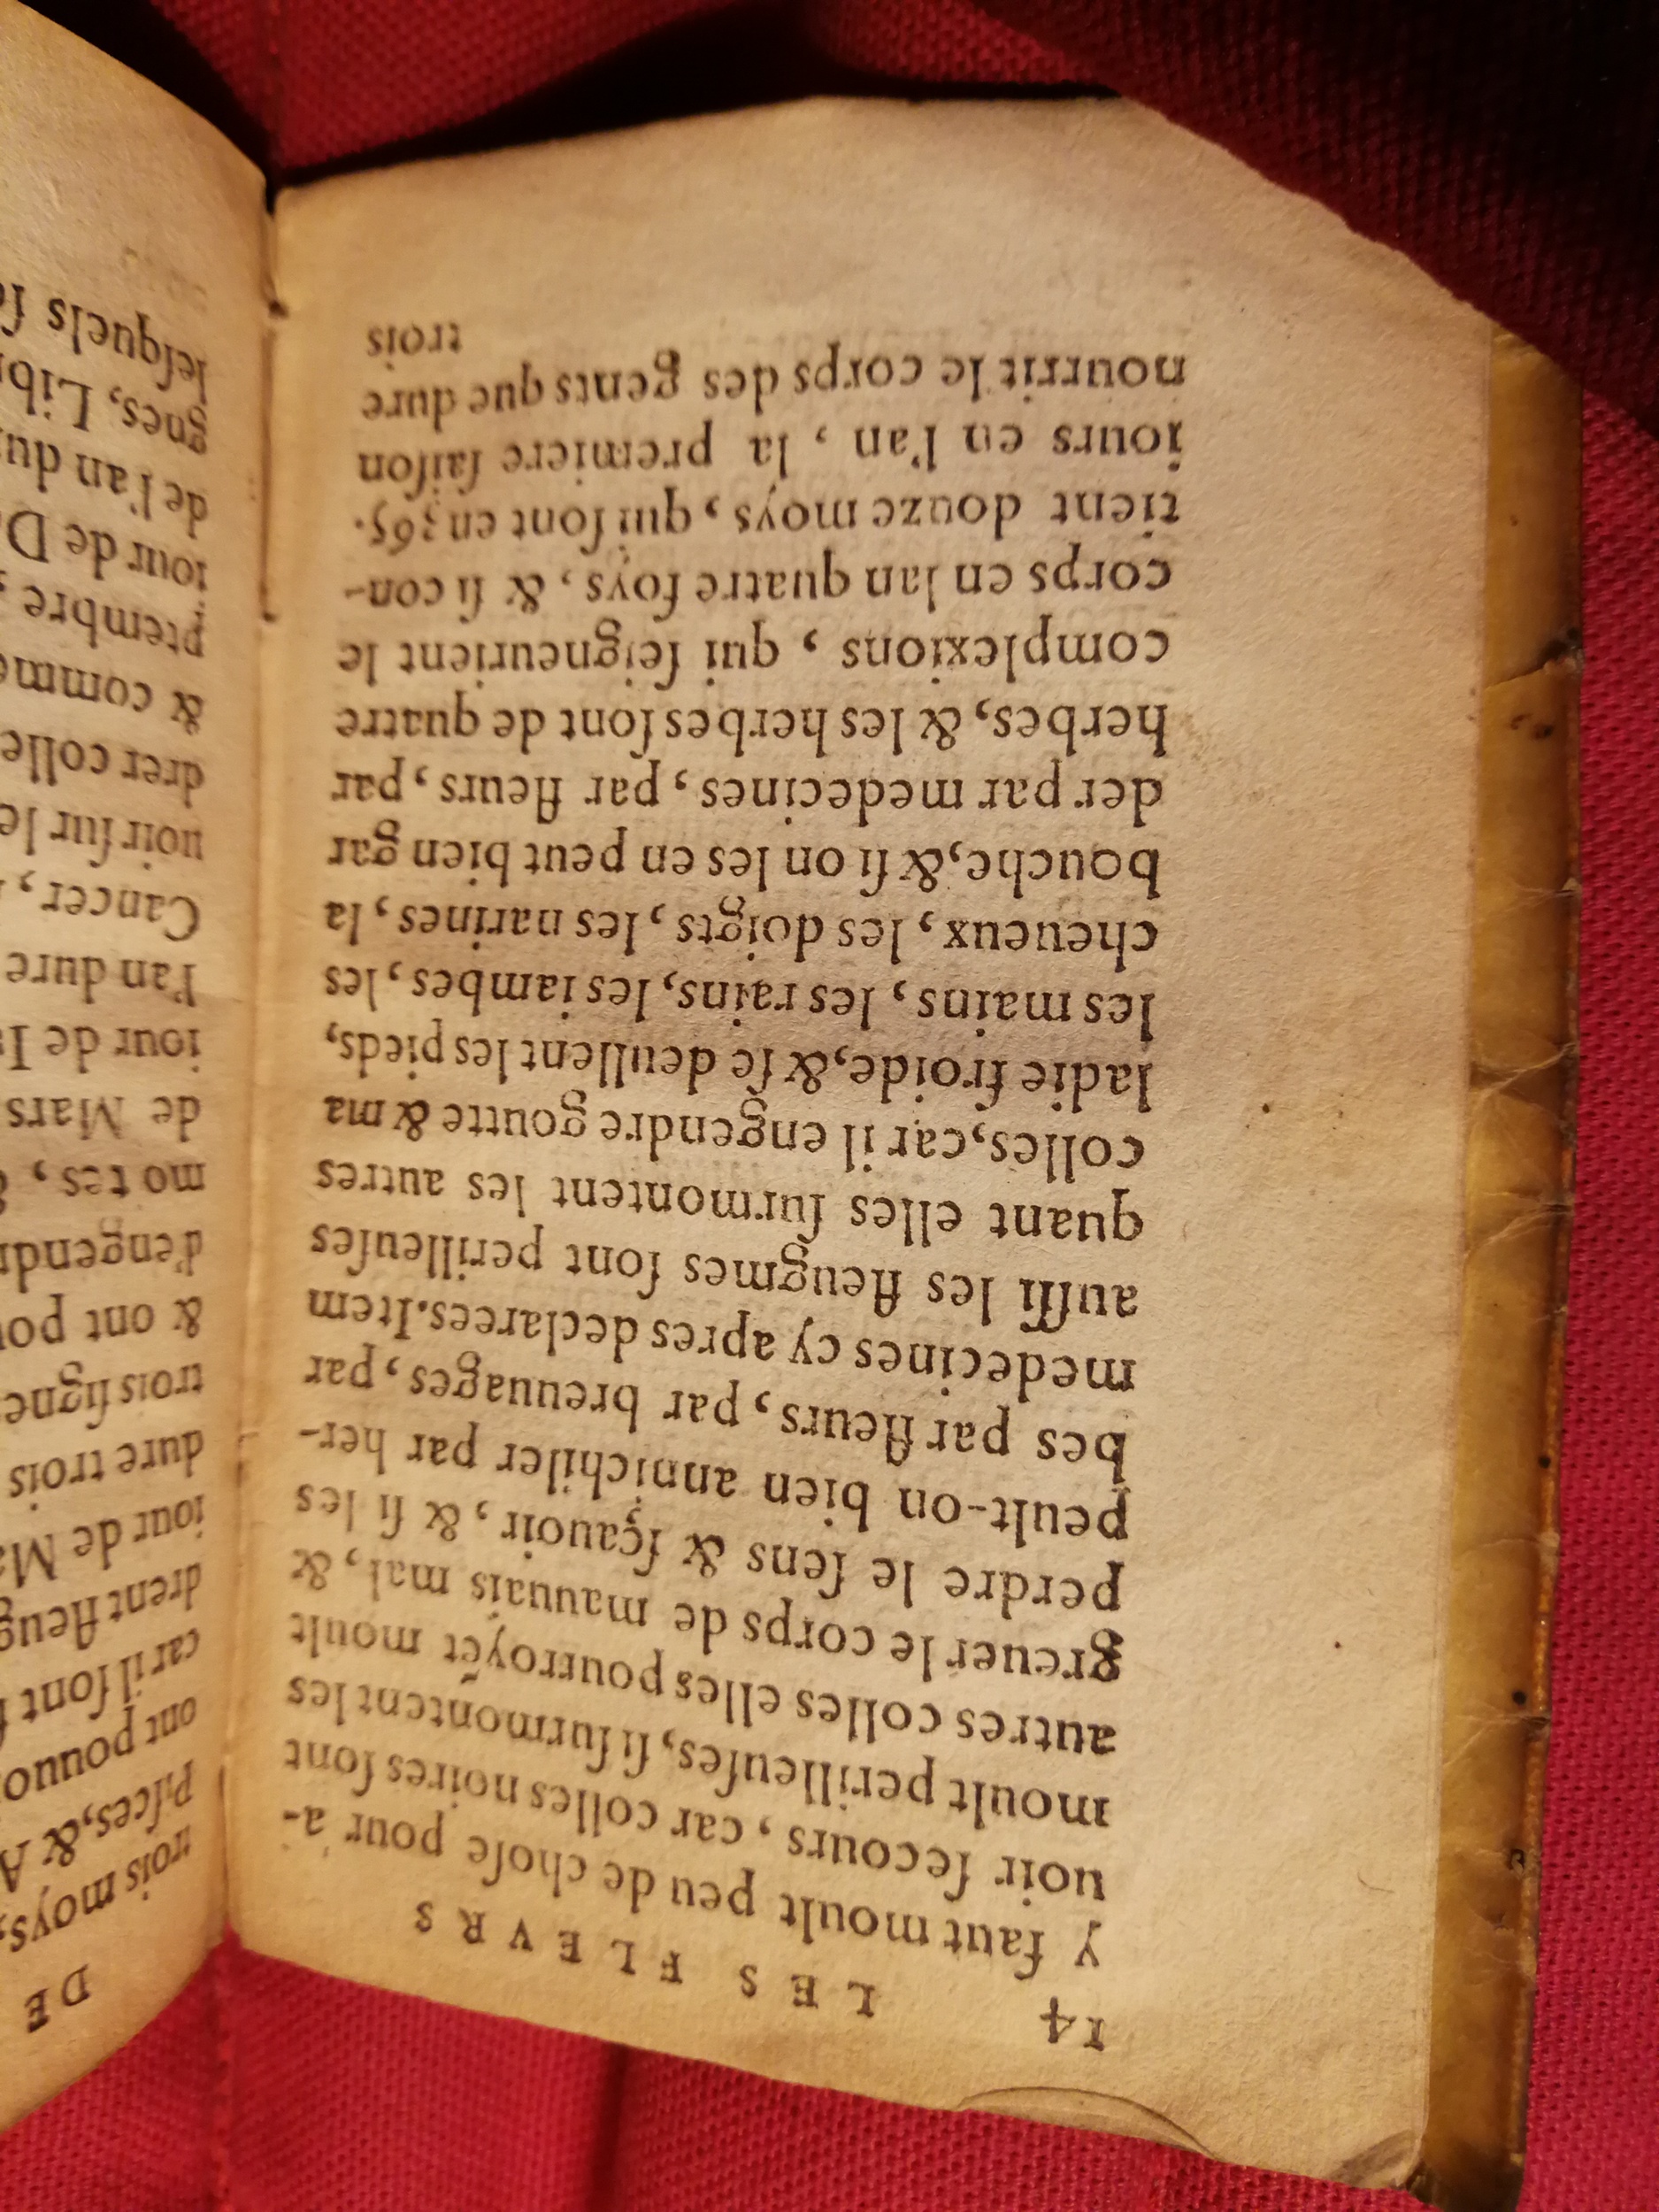 14 LES FLEVRS
y faut moult peu de choſe pour a-
uoir ſecours, car colles noires ſont
moult perilleuſes, ſi ſurmontent les
autres colles elles pourroyẽt moult
greuer le corps de mauuais mal, &
perdre le ſens & ſçauoir, & ſi les
peult-on bien annichiler par her-
bes par fleurs, par breuuages, par
medecines cy apres declarees. Item
auſſi les fleugmes ſont perilleuſes
quant elles ſurmontent les autres
colles, car il engendre goutte & ma
ladie froide, & ſe deullent les pieds,
les mains, les rains, les iambes, les
cheueux, les doigts, les narines, la
bouche, & ſi on les en peut bien gar
der par medecines, par fleurs, par
herbes, & les herbes ſont de quatre
complexions, qui ſeigneurient le
corps en lan quatre foys, & ſi con-
tient douze moys, qui ſont en 365.
iours en l'an, la premiere ſaiſon
nourrit le corps des gents que dure
trois
DE
trois moys,
Piſces, & A
ont pouuo
car il ſont
drent fleug
iour de Ma
dure trois
trois ſigne
& ont pou
d'engendr
mo tes,
de Mars
iour de I
l'an dure
Cancer,
uoir ſur le
drer colle
& comme
ptembre,
iour de D
de l'an du
gnes, Lib
leſquels ſ